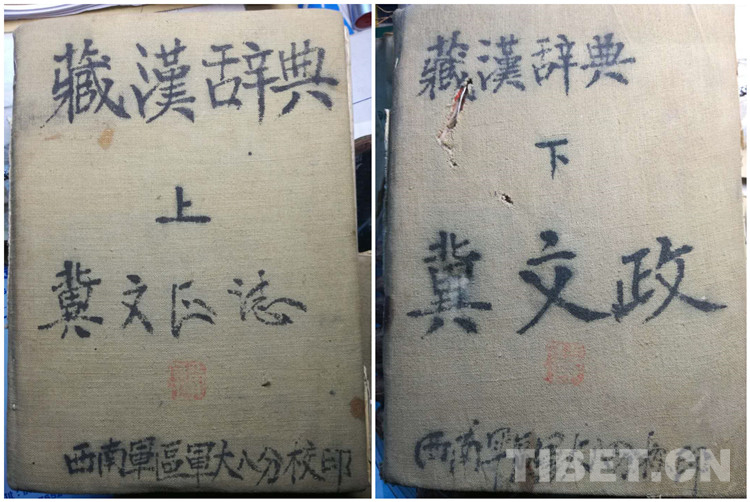 藏漢辞典
上
冀文正誌
西南軍區軍大八分校印
藏漢辞典
下
冀文政
西南軍區軍大八分校印
TIBET.CN